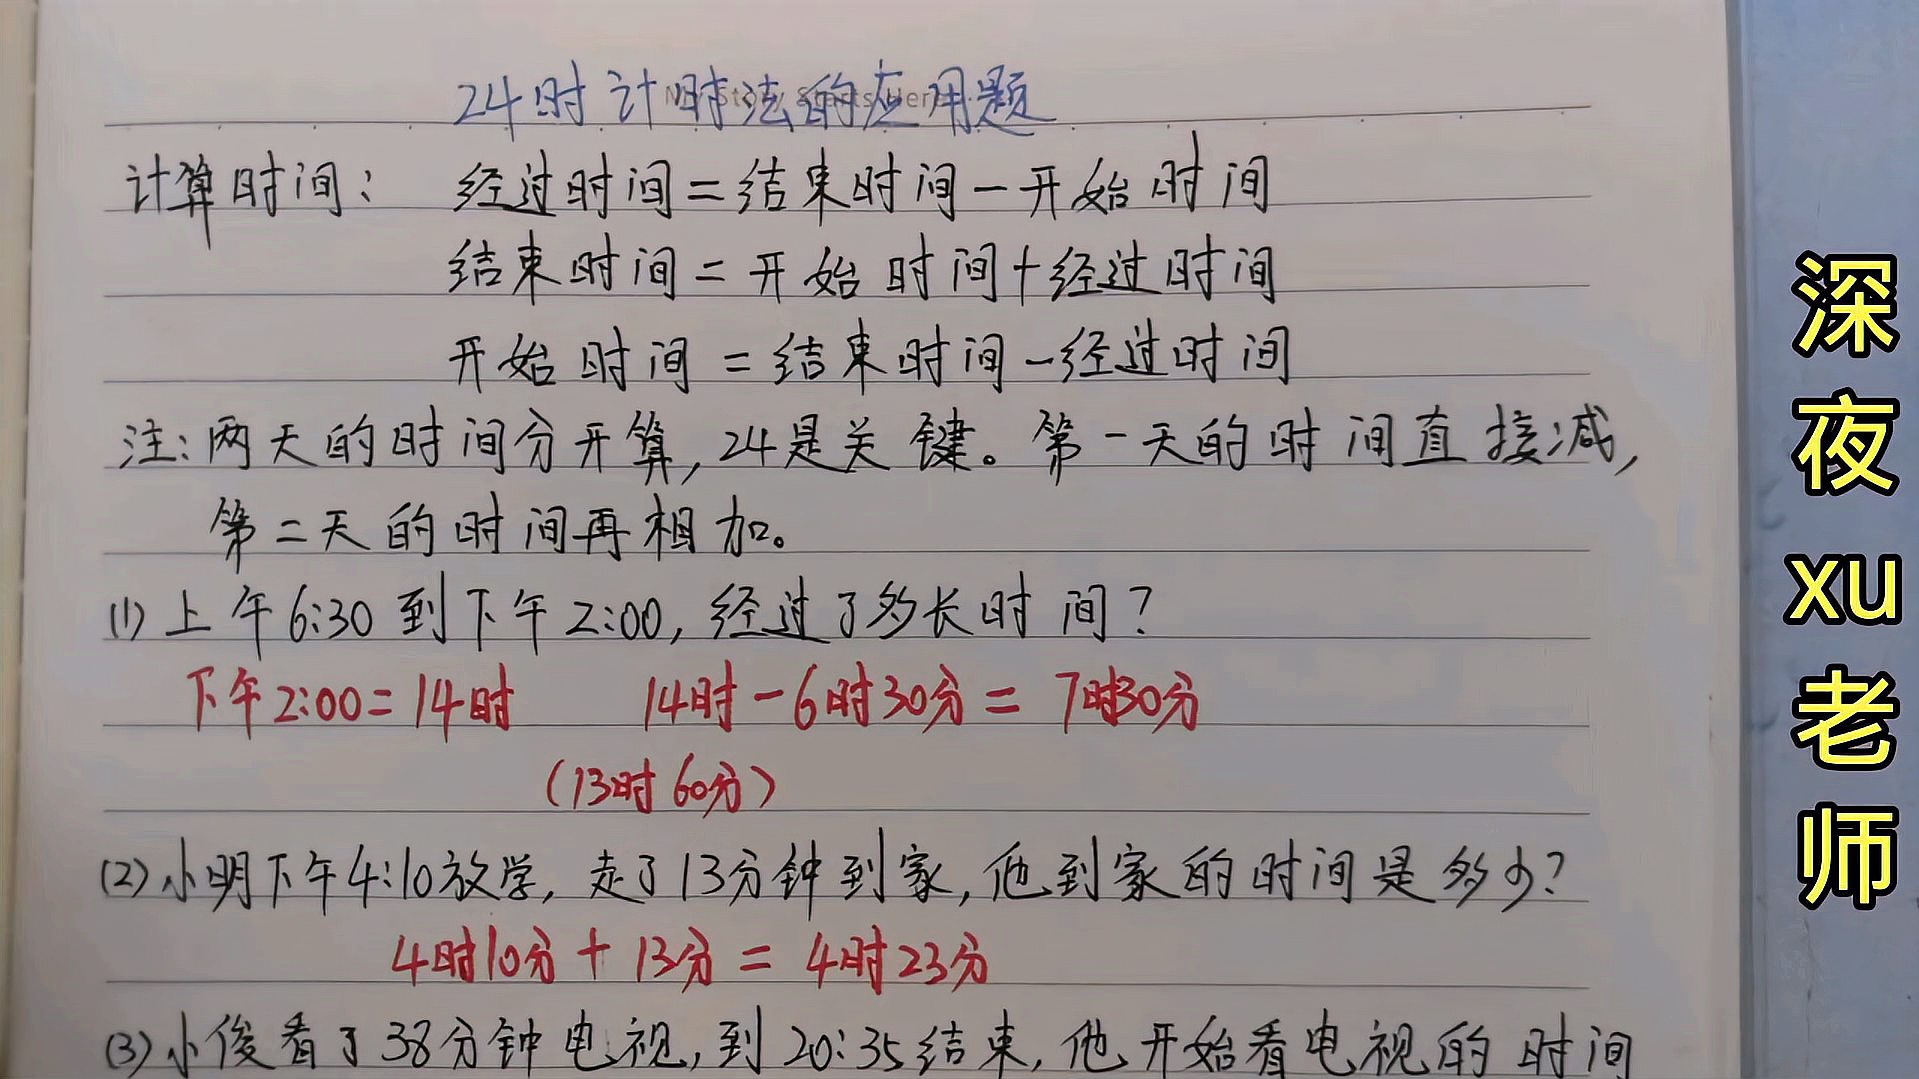 24时计时法的应用题
计算时间: 经过时间=结束时间-开始时间
结束时间=开始时间+经过时间
开始时间=结束时间-经过时间
注:两天的时间分开算,24是关键。第一天的时间直接减,
第二天的时间再相加。
(1)上午6:30到下午2:00,经过了多长时间?
下午2:00=14时 14时-6时30分=7时30分
(13时60分)
(2)小明下午4:10放学,走了13分钟到家,他到家的时间是多少?
4时10分+13分=4时23分
(3)小俊看了38分钟电视,到20:35结束,他开始看电视的时间
深夜xu老师